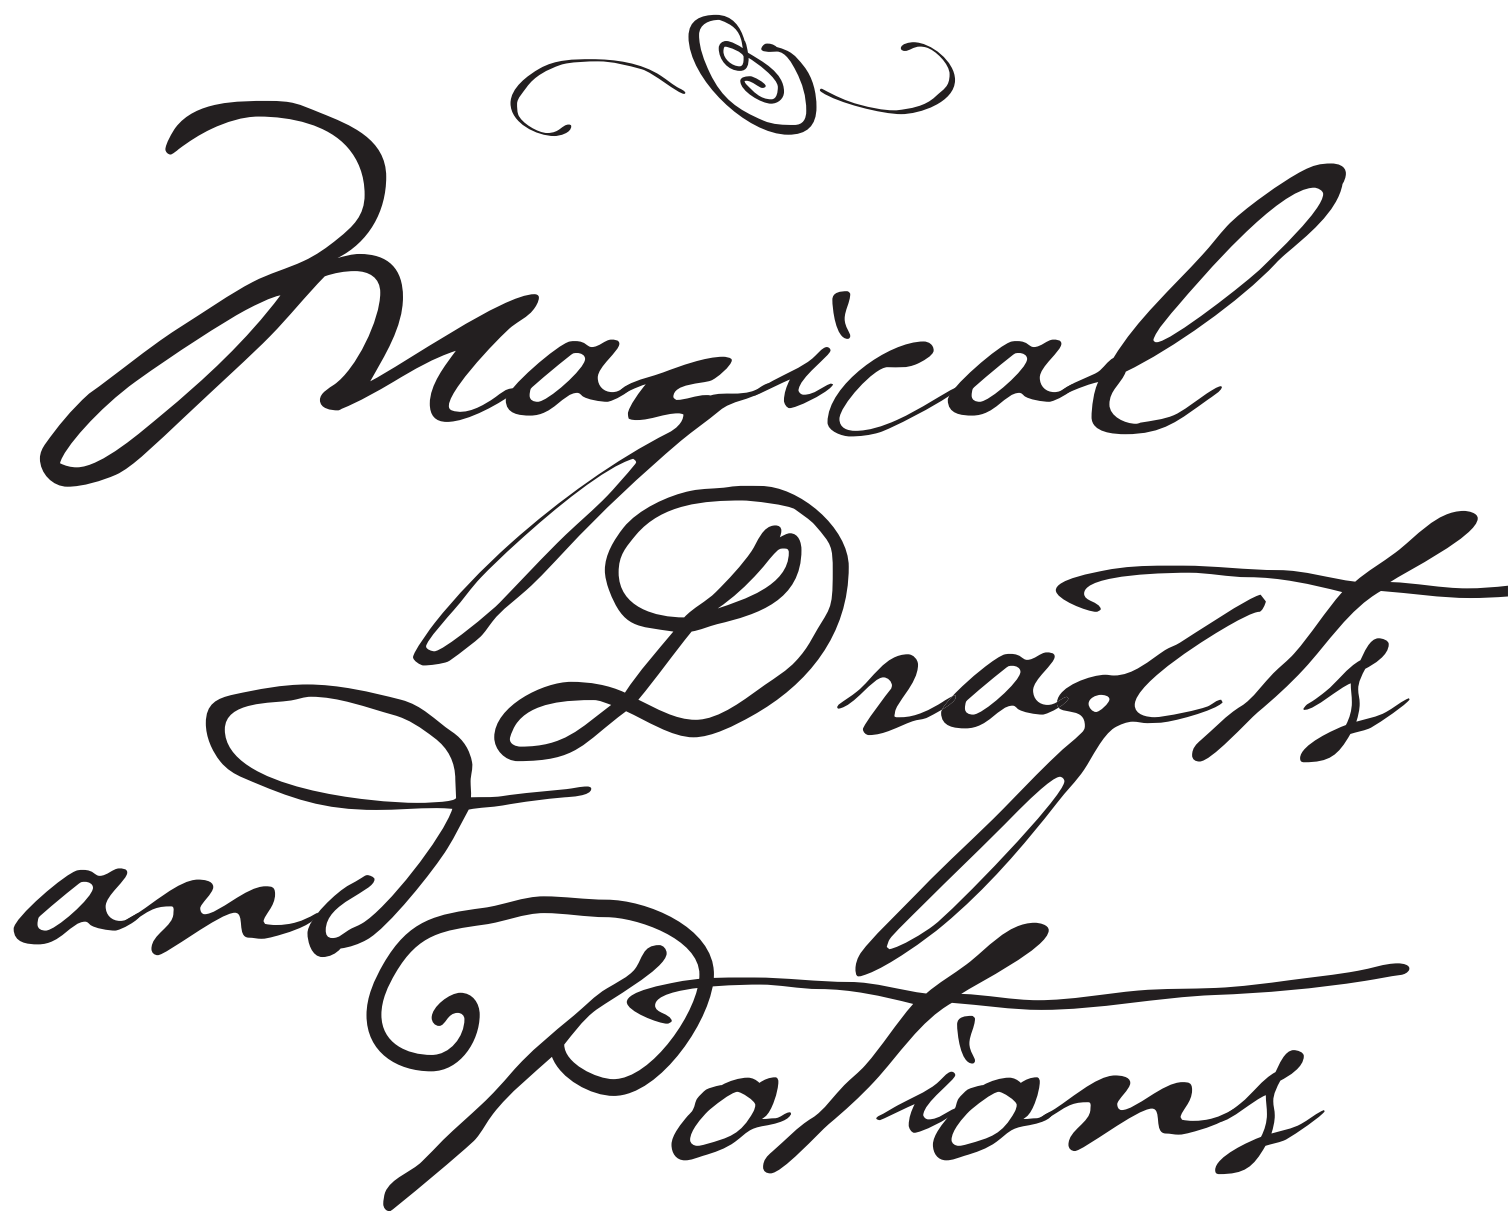 Magical
Drafts
and
Potions